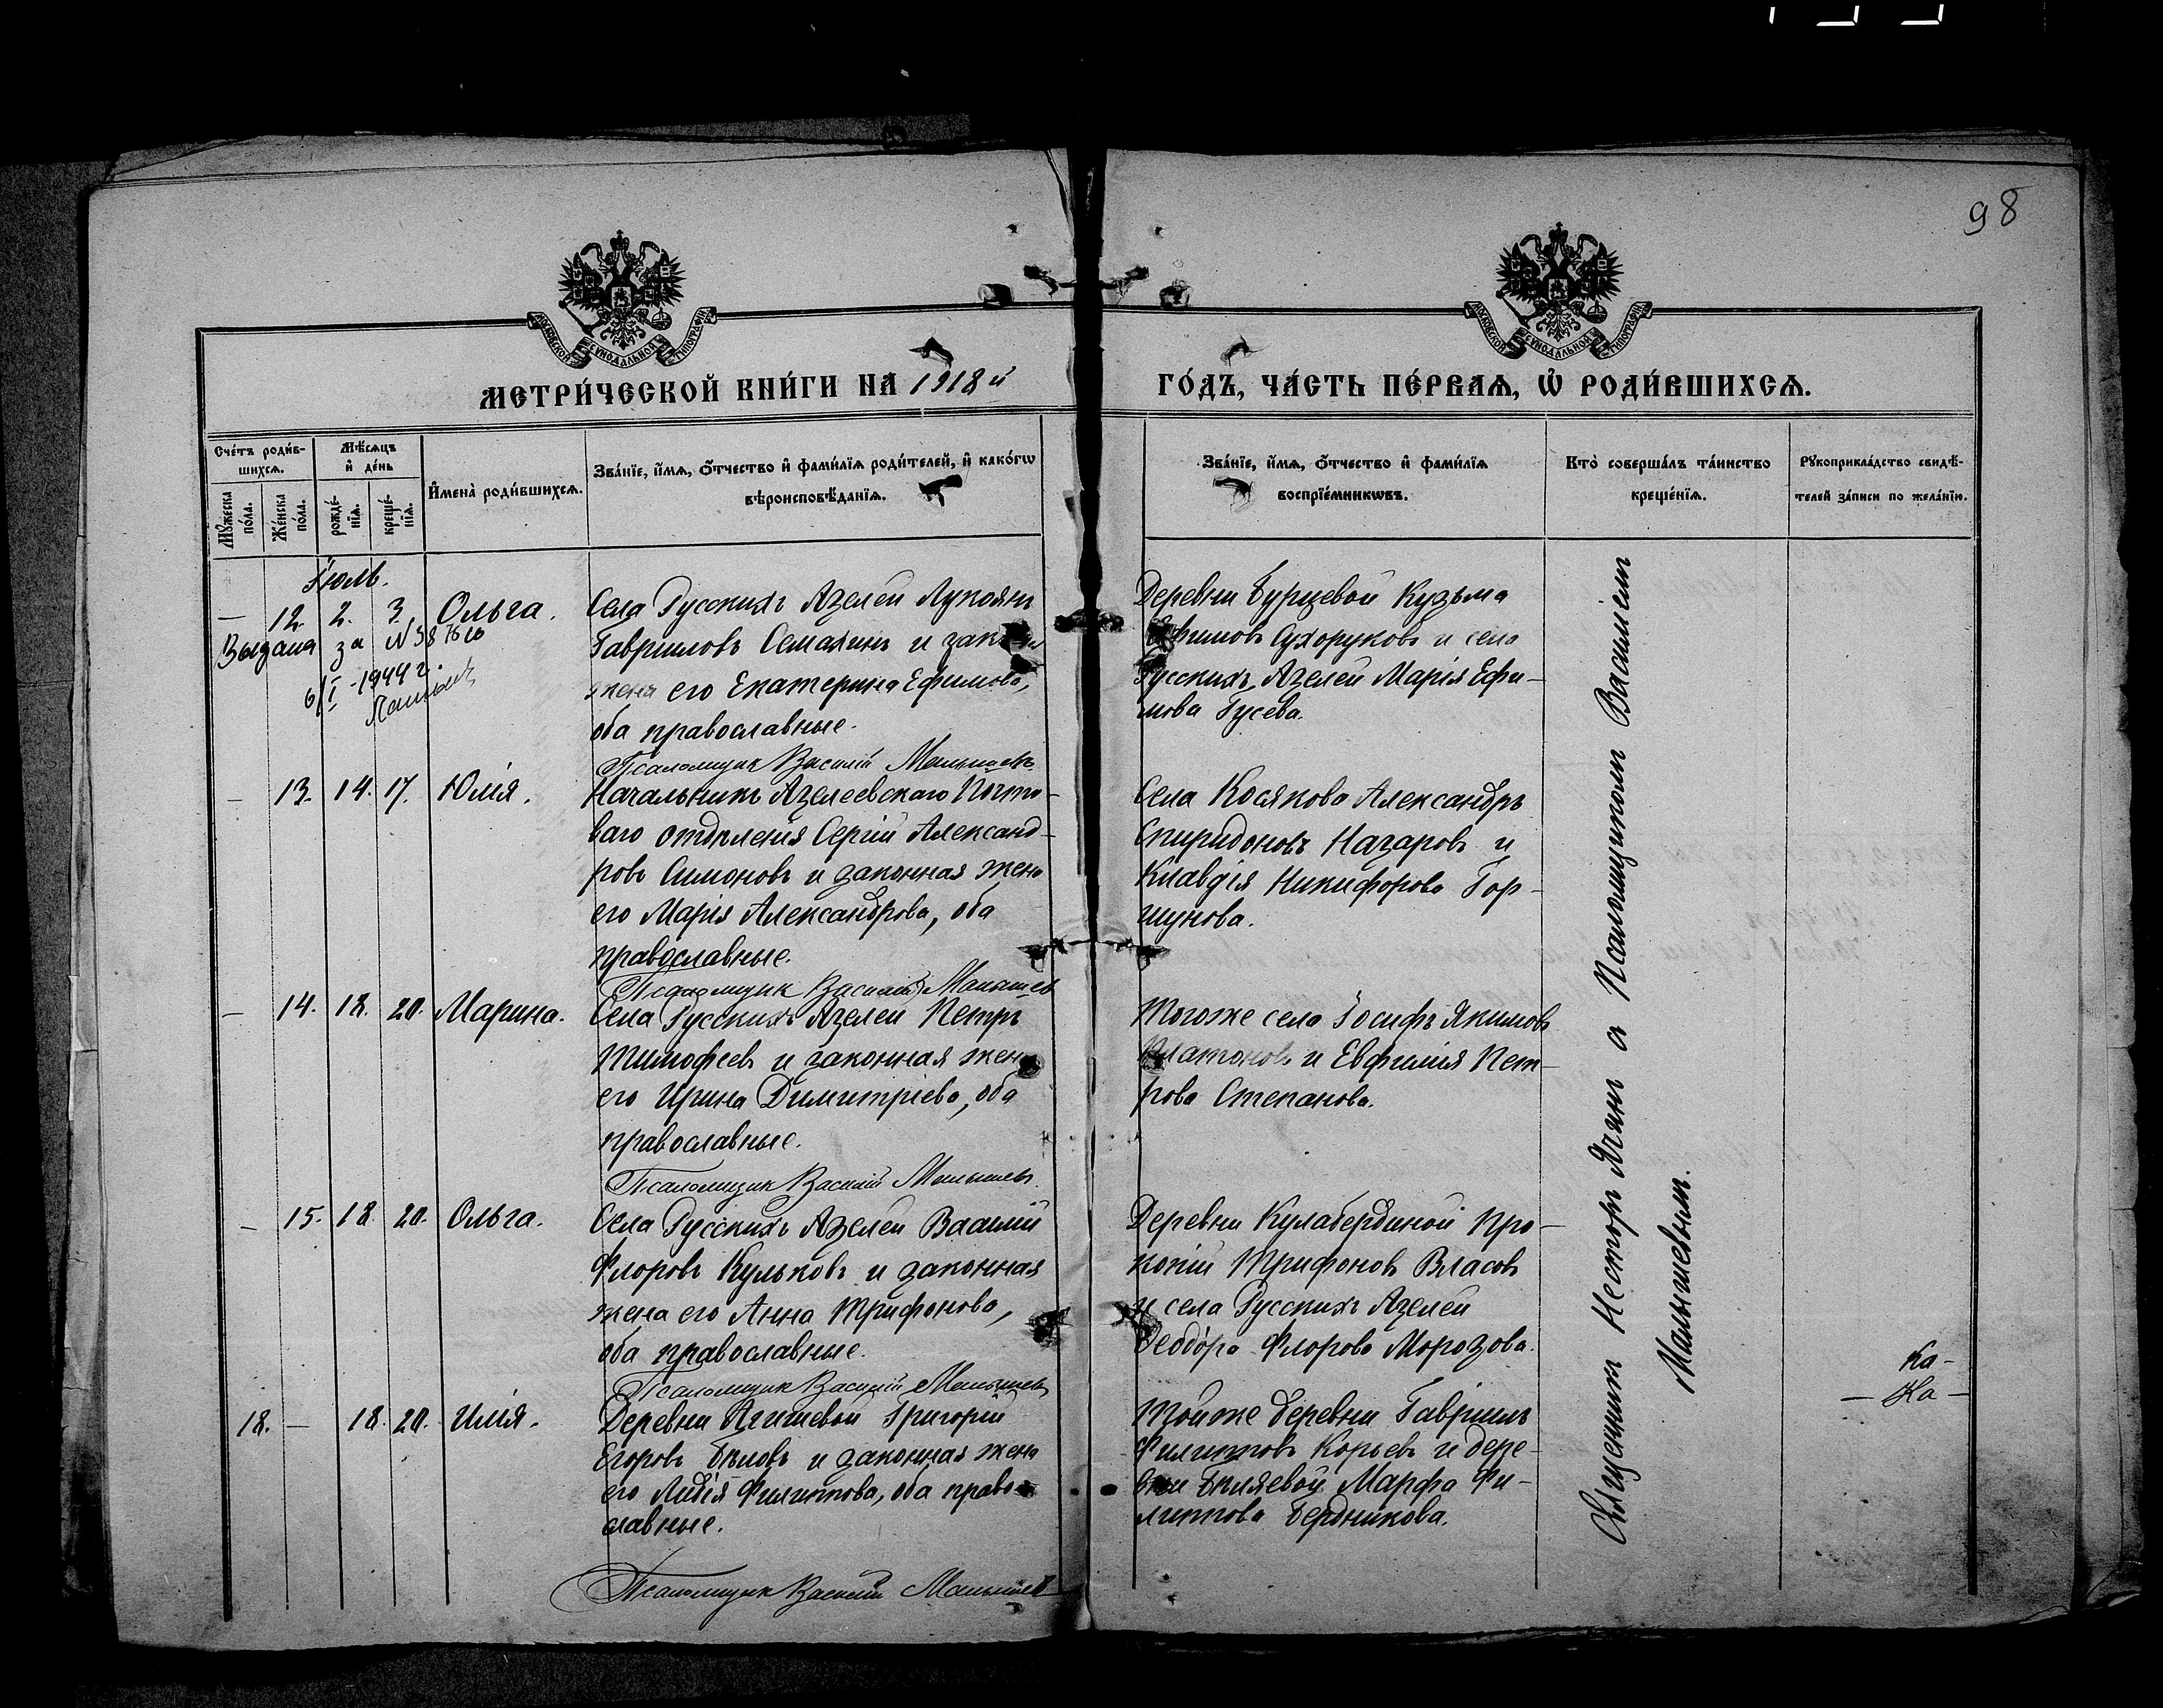 98
МОСКОВСКОЙ СѴНОДАЛЬНОЙ ТИПОГРАФІИ
МОСКОВСКОЙ СѴНОДАЛЬНОЙ ТИПОГРАФІИ
МЕТРИ́ЧЕСКОЙ КНИ́ГИ НА 1918 й ГО́ДЪ, ЧА́СТЬ ПЕ́РВАѦ, Ѡ҆ РОДИ́ВШИХСѦ.
Сче́тъ роди́в-
шихсѧ.
Мѹ́жеска
по́ла.
Же́нска
по́ла.
Мѣ́сѧцъ
и҆ де́нь
рожде́-
нїѧ.
креще́-
нїѧ.
И҆мена̀ роди́вшихсѧ.
Зва́нїе, и҆́мѧ, ѻ҆́тчество и҆ фами́лїѧ роди́телей, и҆ како́гѡ
вѣроисповѣ́данїѧ.
Зва́нїе, и҆́мѧ, ѻ҆́тчество и҆ фами́лїѧ
воспрїе́мникѡвъ.
Кто̀ соверша́лъ та́инство
креще́нїѧ.
Рѹкоприкла́дство свидѣ́-
телей за́писи по жела́нїю.
Іюль.
— 12. 2. 3. Ольга.
Выдана за №
6/I - 1944 г.
Села Русскихъ Азелей Лукоянъ
Гавриловъ Семакинъ и
жена его Екатерина Ефимова,
оба православные.
Псаломщик Василий Малышевъ
Деревни Бурцевой Кузьма
Сухоруковъ и села
Русскихъ Азелей Марія Ефи-
мова Гусева.
— 13. 14. 17. Юлія.
Начальникъ Азелеевскаго Почто-
ваго отдѣленія Сергій Александ-
ровъ Симоновъ и законная жена
его Марія Александрова, оба
православные.
Псаломщик Василий Малышев
Села Косякова Александръ
Спиридоновъ Назаровъ и
Клавдія Никифорова Гор-
шунова.
— 14. 18. 20. Марина.
Села Русскихъ Азелей Петръ
Тимофеевъ и законная жена
его Ирина Димитріева, оба
православные.
Псаломщик Василий Малышевъ
Тогоже села Іосифъ Якимовъ
Платоновъ и Евфимія Пет-
рова Степанова.
— 15. 18. 20. Ольга.
Села Русскихъ Азелей Василій
Флоровъ Кульковъ и законная
жена его Анна Трифонова,
оба православные.
Псаломщик Василий Малышевъ
Деревни Кулабердиной Про-
копій Трифоновъ Власовъ
и села Русскихъ Азелей
Ѳеодора Флорова Морозова.
18. — 18. 20. Илія.
Деревни Агишевой Григорій
Егоровъ Бѣловъ и законная жена
его Лидія Филиппова, оба право-
славные.
Псаломщик Василий Малышев
Тойже деревни Гавріилъ
Филипповъ Корьевъ и дере-
вни Бѣляевой Марфа Фи-
липпова Бердникова.
Священник Нестор Ягин а Псаломщиком Василием
Малышевым.
Ка-
— Ка —